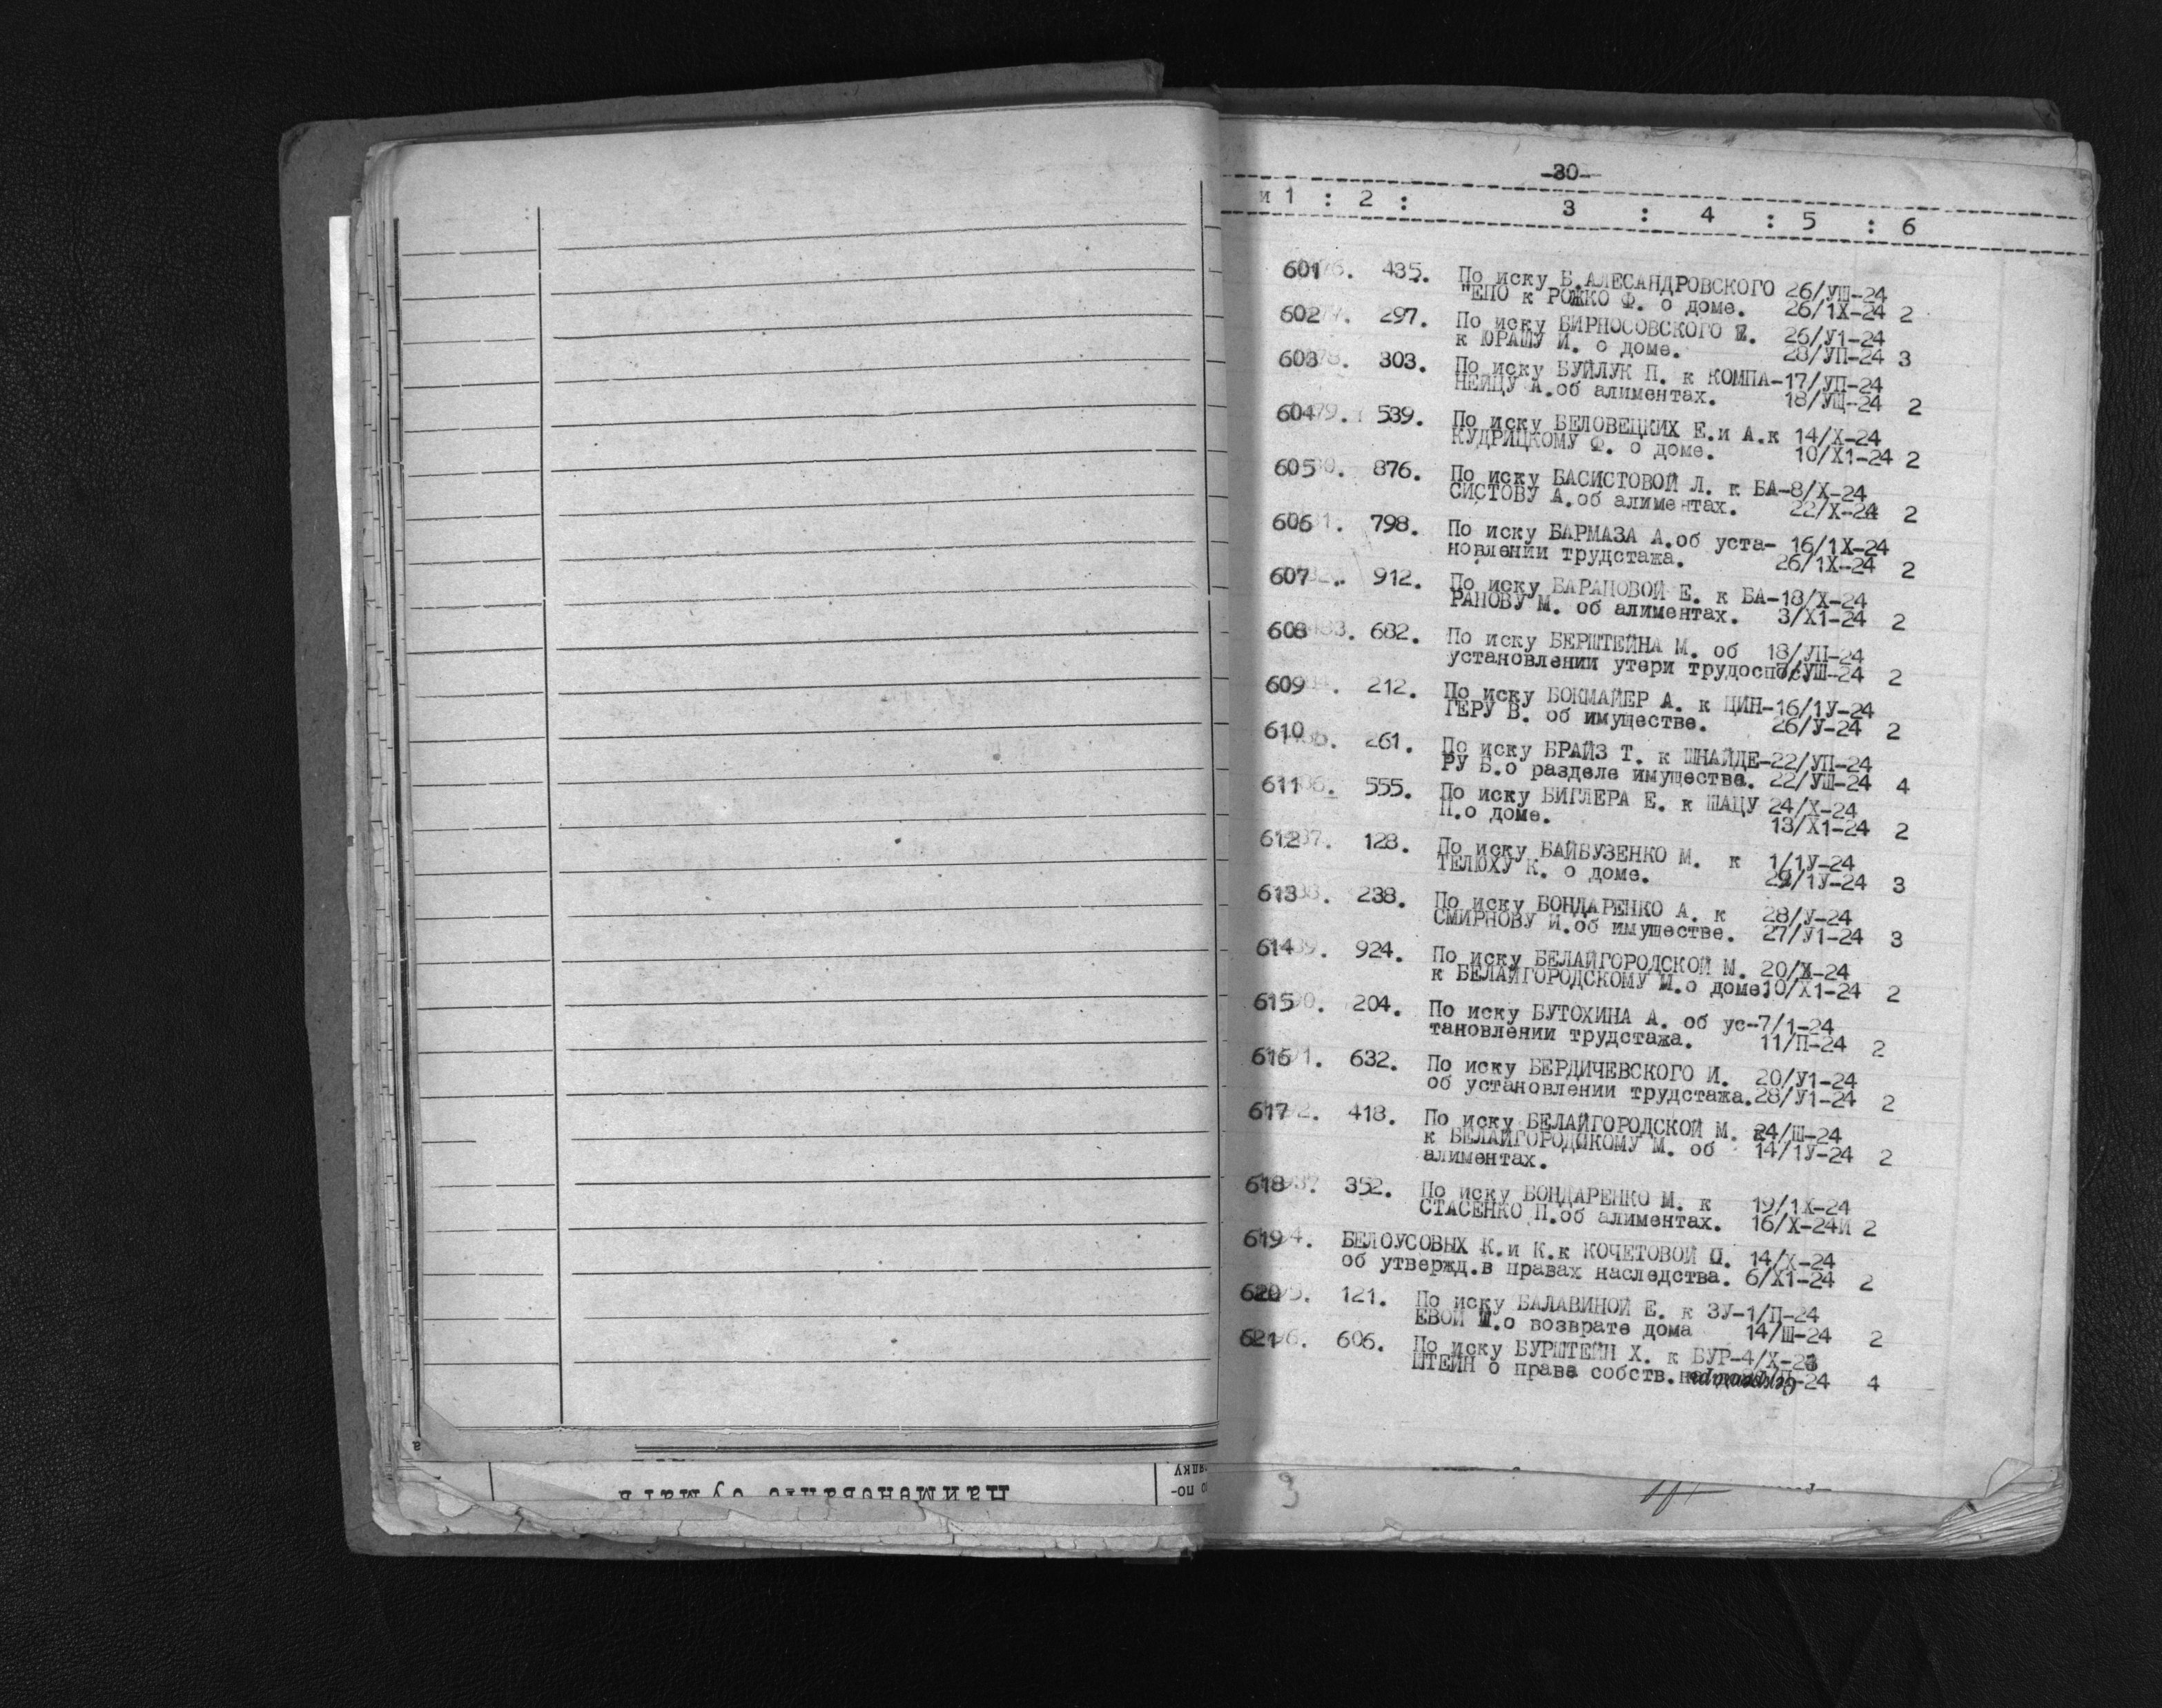 -30-
и 1 : 2 : 3 : 4 : 5 : 6
601 435. По иску Б.АЛЕСАНДРОВСКОГО 26/УШ-24
"ЕПО к РОЖКО Ф. о доме. 26/1Х-24 2
602 297. По иску БИРНОСОВСКОГО 26/У1-24
к ЮРАШУ И. о доме. 28/УП-24 3
603 303. По иску БУЙЛУК П. к КОМПА-17/УП-24
НЕЙЦУ А.об алиментах. 18/УШ-24 2
604 539. По иску БЕЛОВЕЦКИХ Е.и А.к 14/Х-24
КУДРИЦКОМУ Ф. о доме. 10/Х1-24 2
605 876. По иску БАСИСТОВОЙ Л. к БА-8/Х-24
СИСТОВУ А.об алиментах. 22/Х-24 2
606 798. По иску БАРМАЗА А.об уста- 16/1Х-24
новлении трудстажа. 26/1Х-24 2
607 912. По иску БАРАНОВОЙ Е. к БА-18/Х-24
РАНОВУ М. об алиментах. 3/Х1-24 2
608 682. По иску БЕРШТЕЙНА М. об 18/УП-24
установлении утери трудоспос УШ-24 2
609 212. По иску БОКМАЙЕР А. к ЦИН-16/1У-24
ГЕРУ В. об имуществе. 26/У-24 2
610 261. По иску БРАЙЗ Т. к ШНАЙДЕ-22/УП-24
РУ Б.о разделе имущества. 22/УШ-24 4
611 555. По иску БИГЛЕРА Е. к ШАЦУ 24/Х-24
П.о доме. 13/Х1-24 2
612 128. По иску БАЙБУЗЕНКО М. к 1/1У-24
ТЕЛЮХУ К. о доме. 29/1У-24 3
613 238. По иску БОНДАРЕНКО А. к 28/У-24
СМИРНОВУ И.об имуществе. 27/У1-24 3
614 924. По иску БЕЛАЙГОРОДСКОЙ М. 20/Х-24
к БЕЛАЙГОРОДСКОМУ М.о доме.10/Х1-24 2
615 204. По иску БУТОХИНА А. об ус-7/1-24
тановлении трудстажа. 11/П-24 2
616 632. По иску БЕРДИЧЕВСКОГО И. 20/У1-24
об установлении трудстажа.28/У1-24 2
617 418. По иску БЕЛАЙГОРОДСКОЙ М. 24/Ш-24
к БЕЛАЙГОРОДЦКОМУ М. об 14/1У-24 2
алиментах.
618 352. По иску БОНДАРЕНКО М. к 19/1Х-24
СТАСЕНКО П.об алиментах. 16/Х-24И 2
619 БЕЛОУСОВЫХ К.и К.к КОЧЕТОВОЙ О. 14/Х-24
об утвержд.в правах наследства. 6/Х1-24 2
620 121. По иску БАЛАВИНОЙ Е. к ЗУ-1/П-24
ЕВОЙ о возврате дома 14/Ш-24 2
621 606. По иску БУРШТЕЙН Х. к БУР-4/Х-23
ШТЕЙН о праве собств. -24 4
Наименование бумаги